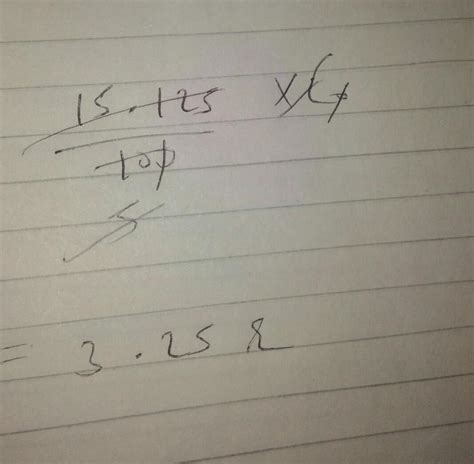 15.125
100
5
= 3.25